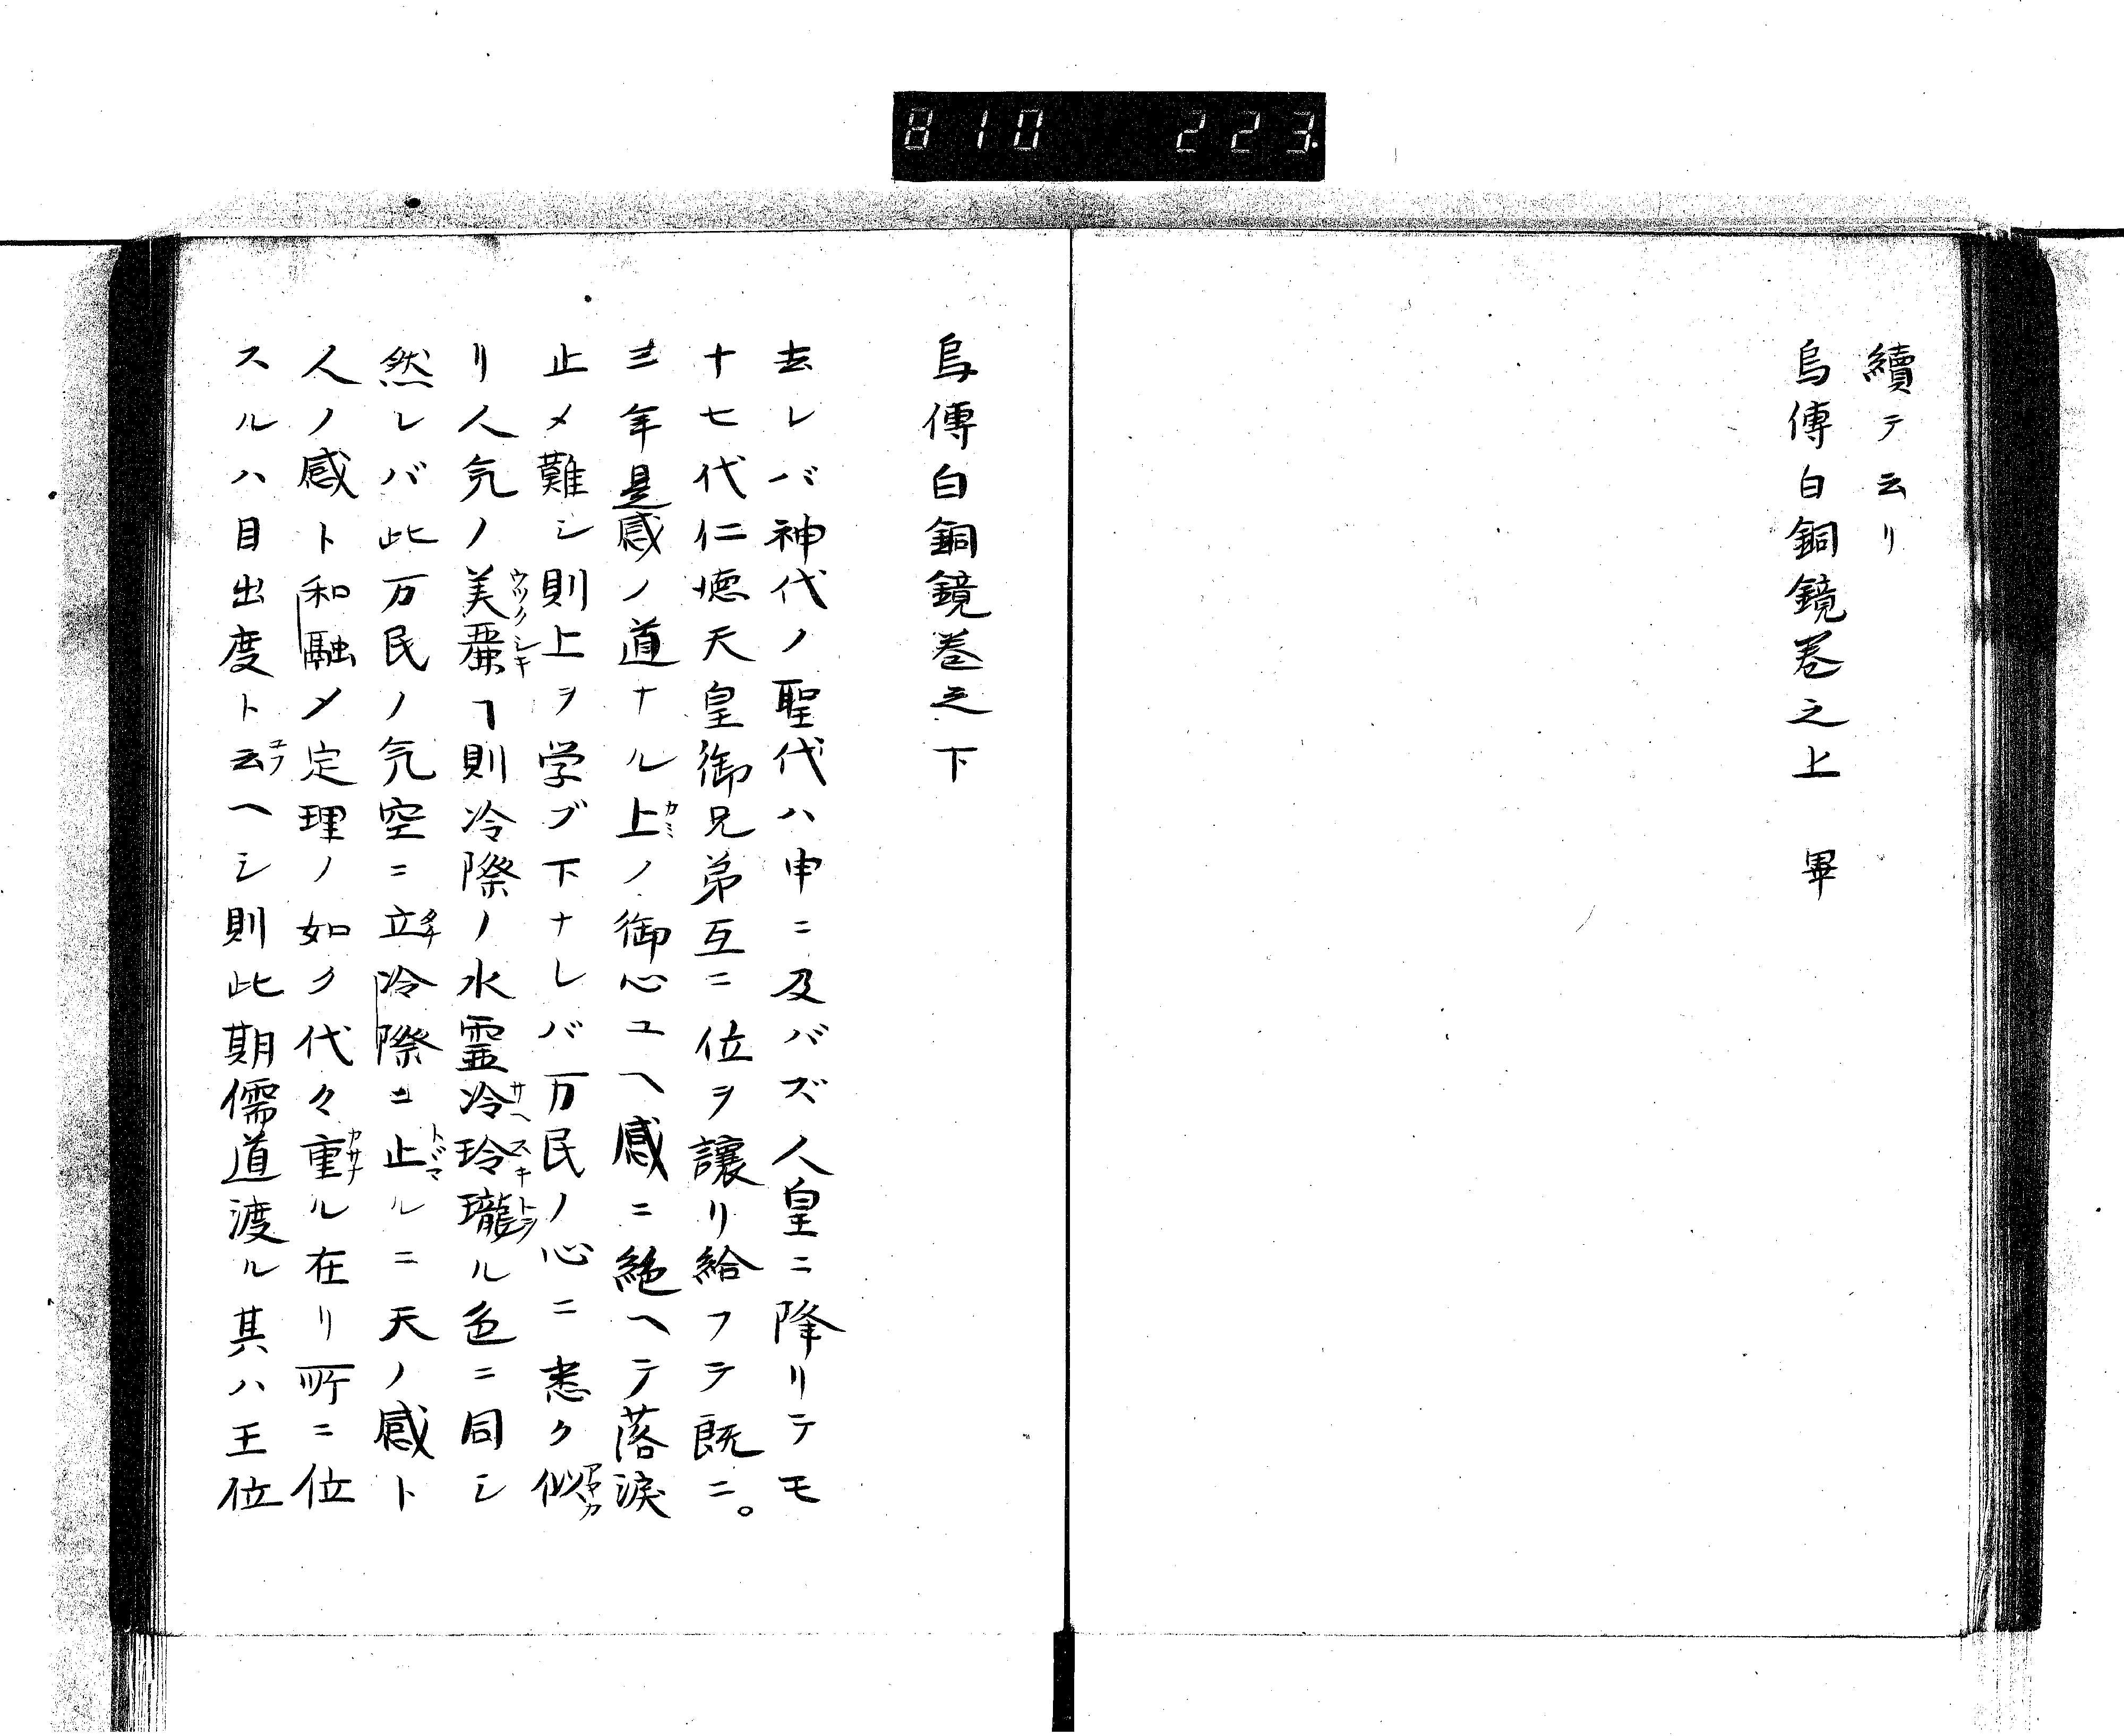 810 223.
續テ云リ
烏傳白銅鏡巻之上 畢
烏傳白銅鏡巻之下
去レバ神代ノ聖代ハ申ニ及バズ人皇ニ降リテモ
十七代仁徳天皇御兄弟互ニ位ヲ譲リ給フテ既ニ。
三年是感ノ道ナル上カミノ御心ユヘ感ニ絶ヘテ落涙
止メ難シ則上ヲ学ブ下ナレバ万民ノ心ニ悉ク似
リ人気ノ美麗ウツクシキヿ則冷際ノ水霊冷サヘ玲瓏スキトヲル色ニ同シ
然レバ此万民ノ気空ニ立タチ冷際ニ止トドマルニ天ノ感ト
人ノ感ト和融〆定理ノ如ク代々重カサナル在リ所ニ位
スルハ目出度ト云ユフヘシ則此期儒道渡ル其ハ王位